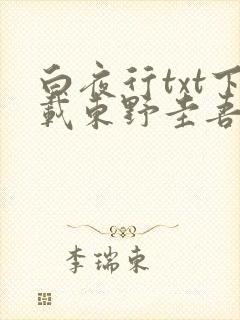 白夜行txt下
载东野圭吾
李瑞东